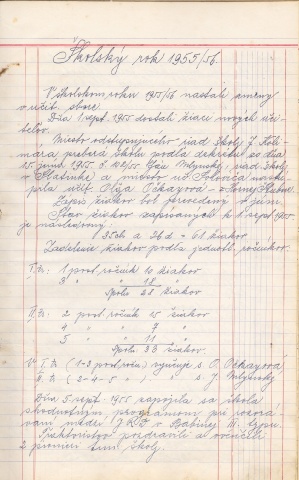 Školský rok 1955/56.
V školskom roku 1955/56 nastali zmeny
v učit. sbore.
Dňa 1. sept. 1955 dostali žiaci nových uči-
teľov.
Miesto odstupujúceho riad. školy J. Koli-
mára preberá školu podľa dekrétu zo dňa
15. júna 1955 riad. školy
v Slatinke a miesto uč. nastú-
pila učit. Oľga Očkayová z Hornej
Zápis žiakov bol prevedený v júni.
Stav žiakov zapísaných k 1. sept. 1955
je nasledovný:
35 ch. a 26 d. = 61 žiakov
Zadelenie žiakov podľa jednotl. ročníkov.
I. tr.: 1 post. ročník 10 žiakov
3 " " 18 "
Spolu 28 žiakov
II. tr.: 2 post. ročník 15 žiakov
4 " " 7 "
5 " " 11 "
Spolu 33 žiakov
V I. tr. (1-3 post. roč.) vyučuje s. O. Očkayová
II. tr. (2-4-5 " ) " s. J.
Dňa 5. sept. 1955 zapojila sa škola
s hodnotným programom pri
vaní JRD v Babinej III. typu.
pozdravili a
2 pionieri tun. školy.